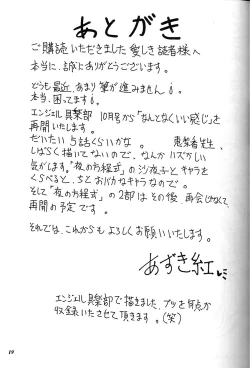 あとがき
ご購読いただきました愛しき読者様へ
本当に、誠にありがとうございます。
どうも最近、あまり筆が進みません。
本当、困ってます。
エンジェル倶楽部 10月号から「なんとなくいい感じ」を
再開いたします。
だいたい 5話くらいかな。
しばらく描いてないので、なんか ハズかしい
気がします。「夜の方程式」の沙夜子と キャラを
くらべると、ちとおバカなキャラなので。
そして「夜の方程式」の2部は その後、再会じゃなくて
再開の予定です。
それでは、これからも よろしくお願いいたします。
あずき紅
エンジェル倶楽部で描きました、ブツを
収録いたさせて頂きます。(笑)
19